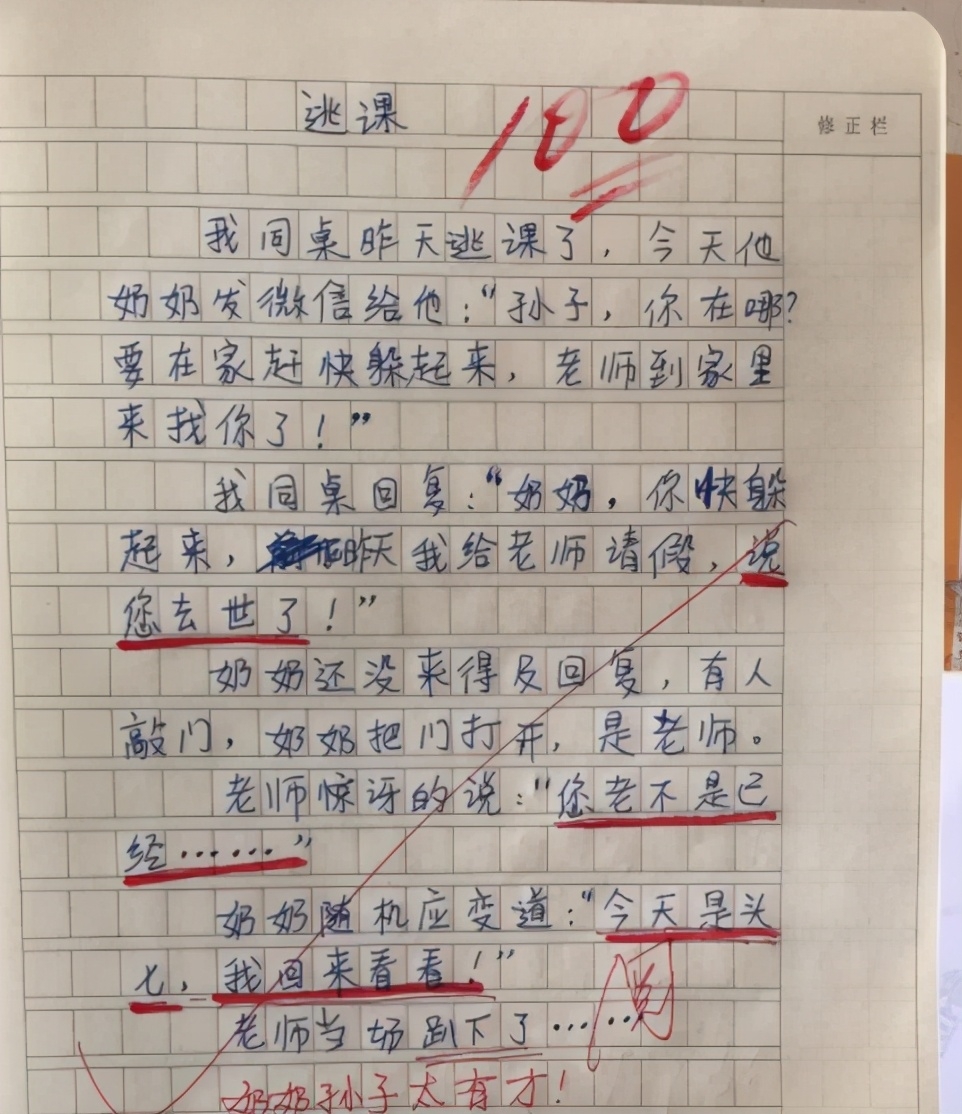 逃课
100
修正栏
我同桌昨天逃课了，今天他
奶奶发微信给他：“孙子，你在哪？
要在家赶快躲起来，老师到家里
来找你了！”
我同桌回复：“奶奶，你快躲
起来，昨天我给老师请假，说
您去世了！”
奶奶还没来得及回复，有人
敲门，奶奶把门打开，是老师。
老师惊讶的说：“您老不是已
经……”
奶奶随机应变道：“今天是头
七，我回来看看！”
老师当场趴下了……
奶奶孙子太有才！